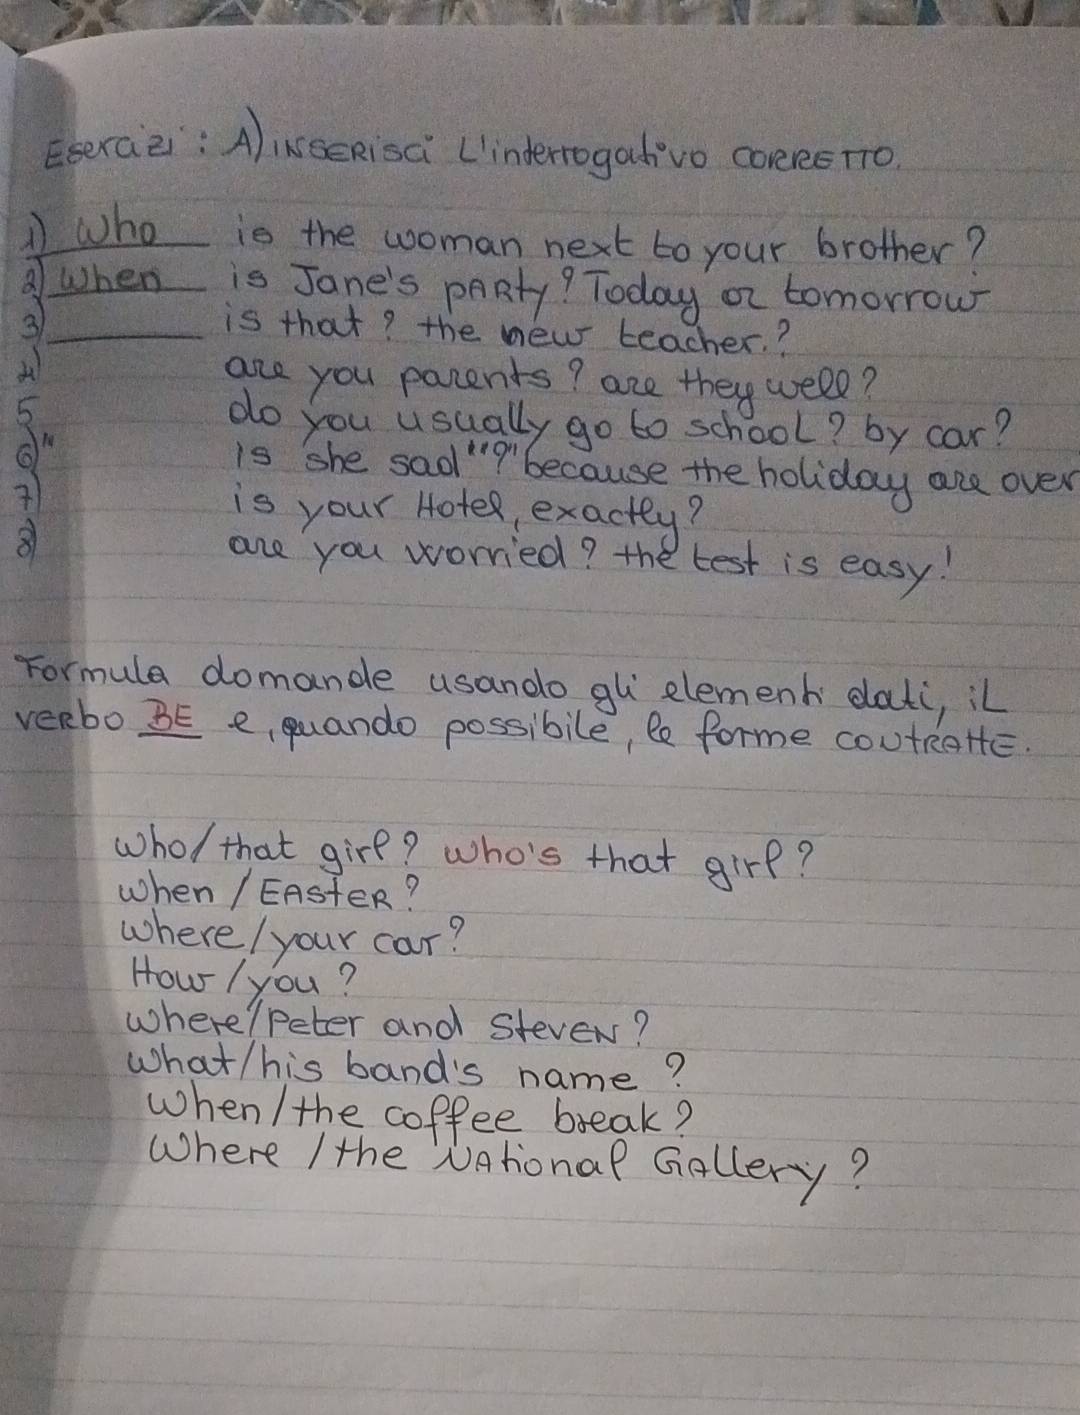 Esercizi: A) inserisci l'interrogativo corretto.
1) Who is the woman next to your brother?
2) When is Jane's party? Today or tomorrow
3) ______ is that? the new teacher.?
4) are you parents? are they well?
5 do you usually go to school? by car?
6)" is she sad "?" because the holiday are over
7) is your Hotel, exactly?
8) are you worried? the test is easy!
Formula domande usando gli elementi dati, il
verbo BE e, quando possibile, le forme coutratte.
Who/that girl? Who's that girl?
When / Easter?
Where/your car?
How /you?
Where/Peter and Steven?
What/his band's name?
When/the coffee break?
Where / the National Gallery?